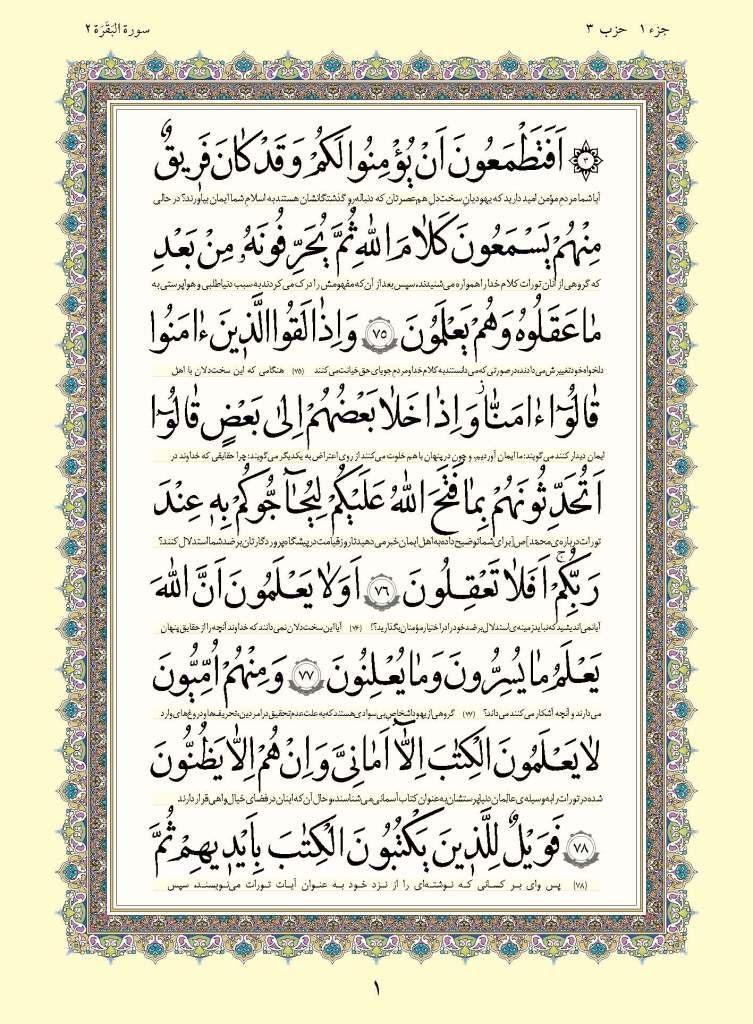 جزء ۱ حزب ۳
سورة البَقَرَة ۲
۳ اَفَتَطْمَعُونَ اَنْ يُؤْمِنُوا لَكُمْ وَ قَدْ كَانَ فَرِيقٌ
آیا شما مردم مؤمن امید دارید که یهودیان سخت‌دل هم‌عصرتان که دنباله‌رو گذشتگانشان هستند به اسلام شما ایمان بیاورند؟ در حالی
مِنْهُمْ يَسْمَعُونَ كَلَامَ اللّٰهِ ثُمَّ يُحَرِّفُونَهُ مِنْ بَعْدِ
که گروهی از آنان تورات کلام خدا را همواره می‌شنیدند، سپس بعد از آن که مفهومش را درک می‌کردند به سبب دنیاطلبی و هواپرستی به
مَا عَقَلُوهُ وَ هُمْ يَعْلَمُونَ ۷۵ وَ اِذَا لَقُوا الَّذِينَ ءَامَنُوا
دلخواه خود تغییرش می‌دادند، در صورتی که می‌دانستند به کلام خدا و مردم جویای حق خیانت می‌کنند (۷۵) هنگامی که این سخت‌دلان با اهل
قَالُوٓا ءَامَنَّا ز وَ اِذَا خَلَا بَعْضُهُمْ اِلٰى بَعْضٍ قَالُوٓا
ایمان دیدار کنند می‌گویند: ما ایمان آوردیم. و چون در پنهان با هم خلوت می‌کنند از روی اعتراض به یکدیگر می‌گویند: چرا حقایقی که خداوند در
اَتُحَدِّثُونَهُمْ بِمَا فَتَحَ اللّٰهُ عَلَيْكُمْ لِيُحَآجُّوكُمْ بِهٖ عِنْدَ
تورات درباره‌ی محمّد [ص] برای شما توضیح داده به اهل ایمان خبر می‌دهید تا روز قیامت در پیشگاه پروردگارتان بر ضد شما استدلال کنند؟
رَبِّكُمْ ج اَفَلَا تَعْقِلُونَ ۷۶ اَوَلَا يَعْلَمُونَ اَنَّ اللّٰهَ
آیا نمی‌اندیشید که نباید زمینه‌ی استدلال بر ضد خود را در اختیار مؤمنان بگذارید؟! (۷۶) آیا این سخت‌دلان نمی‌دانند که خداوند آنچه را از حقایق پنهان
يَعْلَمُ مَا يُسِرُّونَ وَ مَا يُعْلِنُونَ ۷۷ وَ مِنْهُمْ اُمِّيُّونَ
می‌دارند و آنچه آشکار می‌کنند می‌داند؟ (۷۷) گروهی از یهود اشخاص بی‌سوادی هستند که به علت عدم تحقیق در امر دین، تحریف‌ها و دروغ‌های وارد
لَا يَعْلَمُونَ الْكِتٰبَ اِلَّآ اَمَانِيَّ وَ اِنْ هُمْ اِلَّا يَظُنُّونَ
شده در تورات را به وسیله‌ی عالمان دنیاپرستشان به عنوان کتاب آسمانی می‌شناسند، و حال آن که اینان در فضای خیال واهی قرار دارند
۷۸ فَوَيْلٌ لِلَّذِينَ يَكْتُبُونَ الْكِتٰبَ بِاَيْدِيهِمْ ثُمَّ
(۷۸) پس وای بر کسانی که نوشته‌ای را از نزد خود به عنوان آیات تورات می‌نویسند، سپس
۱